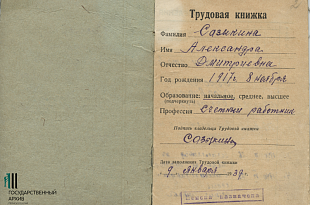 2
Трудовая книжка
Фамилия Сазыкина
Имя Александра
Отчество Дмитриевна
Год рождения 1917 г 8 ноября
Образование: начальное, среднее, высшее
(подчеркнуть)
Профессия счетный работник
Подпись владельца Трудовой книжки
Дата заполнения Трудовой книжки
9 января 1939 г.
ГОСУДАРСТВЕННЫЙ
АРХИВ